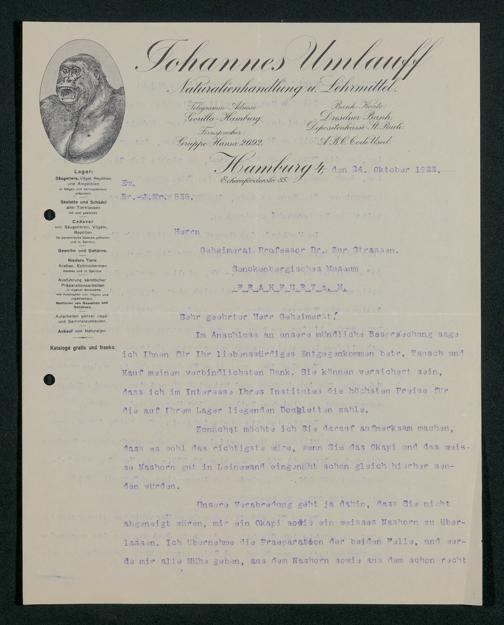 Johannes Umlauff
Naturalienhandlung u. Lehrmittel.
Telegramm-Adresse
Gorilla-Hamburg.
Fernsprecher:
Gruppe Hansa 2692.
Bank-Konto:
Dresdner Bank,
Depositenkasse St. Pauli.
A.B.C. Code Used.
Hamburg 4, den 24. Oktober 1922.
Eckernförderstr. 85.
Lager:
Säugetiere, Vögel, Reptilien
und Amphibien
Skelette und Schädel
aller Tierklassen
Cadaver
von Säugetieren, Vögeln,
Reptilien
Geweihe und Gehörne.
Niedere Tiere
Krebse, Echinodermen
Ausführung sämtlicher
Präparationsarbeiten
Ankauf von Naturalien
Kataloge gratis und franko.
Ew.
Br.-J.Nr. 535.
Herrn
Geheimerat Professor Dr. Zur Strassen.
Senckenbergisches Museum
FRANKFURT a. M.
Sehr geehrter Herr Geheimerat!
Im Anschluss an unsere mündliche Besprechung sage
ich Ihnen für Ihr liebenswürdiges Entgegenkommen betr. Tausch und
Kauf meinen verbindlichsten Dank. Sie können versichert sein,
dass ich im Interesse Ihres Institutes die höchsten Preise für
die auf Ihrem Lager liegenden Doubletten zahle.
Zunächst möchte ich Sie darauf aufmerksam machen,
dass es wohl das richtigste wäre, wenn Sie das Okapi und das weis-
se Nashorn gut in Leinewand eingenäht schon gleich hierher sen-
den würden.
Unsere Verabredung geht ja dahin, dass Sie nicht
abgeneigt wären, mir ein Okapi sowie ein weisses Nashorn zu über-
lassen. Ich übernehme die Praeparation der beiden Felle, und wer-
de mir alle Mühe geben, aus dem Nashorn sowie aus dem schon recht